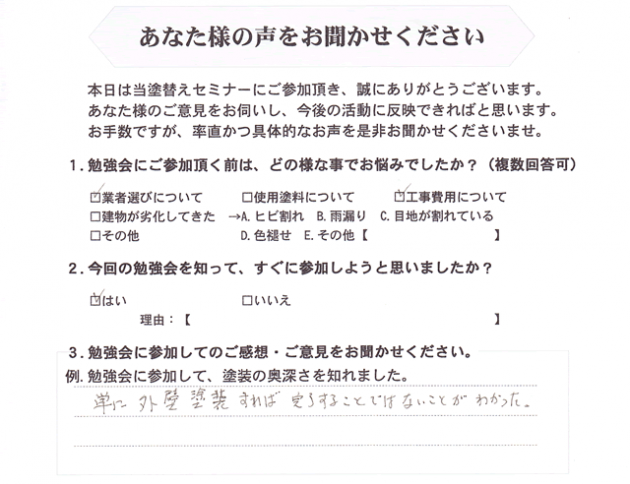 あなた様の声をお聞かせください
本日は当塗替えセミナーにご参加頂き、誠にありがとうございます。
あなた様のご意見をお伺いし、今後の活動に反映できればと思います。
お手数ですが、率直かつ具体的なお声を是非お聞かせくださいませ。
1.勉強会にご参加頂く前は、どの様な事でお悩みでしたか？（複数回答可）
☑業者選びについて □使用塗料について ☑工事費用について
□建物が劣化してきた →A.ヒビ割れ B.雨漏り C.目地が割れている
□その他 D.色褪せ E.その他【 】
2.今回の勉強会を知って、すぐに参加しようと思いましたか？
☑はい □いいえ
理由：【 】
3.勉強会に参加してのご感想・ご意見をお聞かせください。
例.勉強会に参加して、塗装の奥深さを知れました。
単に外壁塗装すれば完了することではないことがわかった。